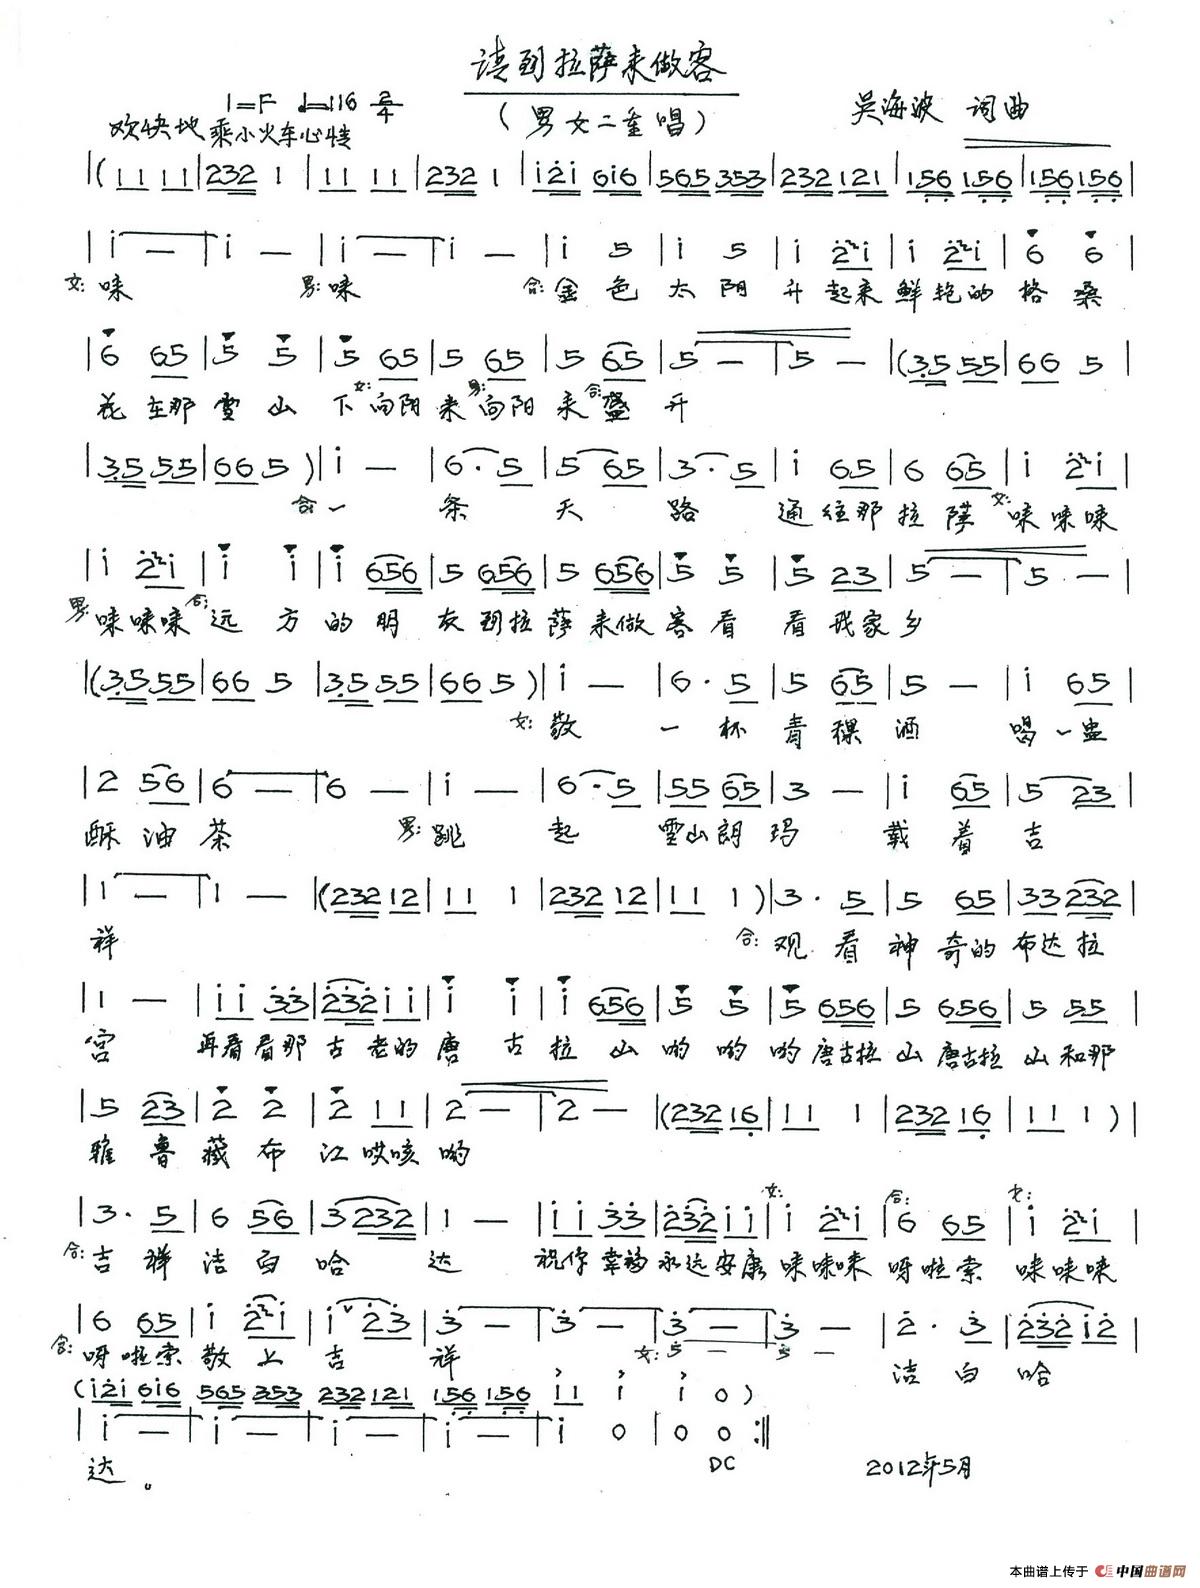 请到拉萨来做客
(男女二重唱)
1=F ♩=116 2/4
吴海波 词曲
欢快地 乘小火车心情
|( 11 11 | 232 1 | 11 11 | 232 1 | i2i 6i6 | 565 353 | 232 121 | 156 156 | 156 156 |
| i — | i — | i — | i — | i 5 | i 5 | i 2i | i 2i | 6 6 |
女: 唻 男: 唻 合: 金色太阳升起来鲜艳的格桑
| 6 65 | 5 5 | 5 65 | 5 65 | 5 65 | 5 — | 5 — |( 3.5 55 | 66 5 |
花在那雪山下女:向阳来男:向阳来合:盛开
| 3.5 55 | 66 5 )| i — | 6. 5 | 5 65 | 3. 5 | i 65 | 6 65 | i 2i |
合: 一条天路通往那拉萨 女: 唻唻唻
| i 2i | i i | i 656 | 5 656 | 5 656 | 5 5 | 5 23 | 5 — | 5 — |
男: 唻唻唻 合: 远方的朋友到拉萨来做客看看我家乡
|( 3.5 55 | 66 5 | 3.5 55 | 66 5 )| i — | 6. 5 | 5 65 | 5 — | i 65 |
女: 敬一杯青稞酒喝一盅
| 2 56 | 6 — | 6 — | i — | 6. 5 | 55 65 | 3 — | i 65 | 5 23 |
酥油茶 男: 跳起雪山朗玛载着吉
| 1 — | 1 — |( 232 12 | 11 1 | 232 12 | 11 1 )| 3. 5 | 5 65 | 33 232 |
祥 合: 观看神奇的布达拉
| 1 — | ii 33 | 232 ii | i i | i 656 | 5 5 | 5 656 | 5 656 | 5 55 |
宫 再看看那古老的唐古拉山哟哟哟唐古拉山唐古拉山和那
| 5 23 | 2 2 | 2 11 | 2 — | 2 — |( 232 16 | 11 1 | 232 16 | 11 1 )|
雅鲁藏布江哎咳哟
| 3. 5 | 6 56 | 3 232 | 1 — | ii 33 | 232 ii | i 2i | 6 65 | i 2i |
合: 吉祥洁白哈达 祝你幸福永远安康 女: 唻唻唻 合: 呀啦索 女: 唻唻唻
| 6 65 | i 2i | i 23 | 3 — | 3 — | 3 — | 3 — | 2. 3 | 232 i2 |
合: 呀啦索敬上吉祥 女: 5 — 5 — 洁白哈
( i2i 6i6 565 353 232 121 156 156 i1 i i 0 )
| i — | i — | i — | i — | i 0 | 0 0 :||
达。 DC 2012年5月
本曲谱上传于 中国曲谱网